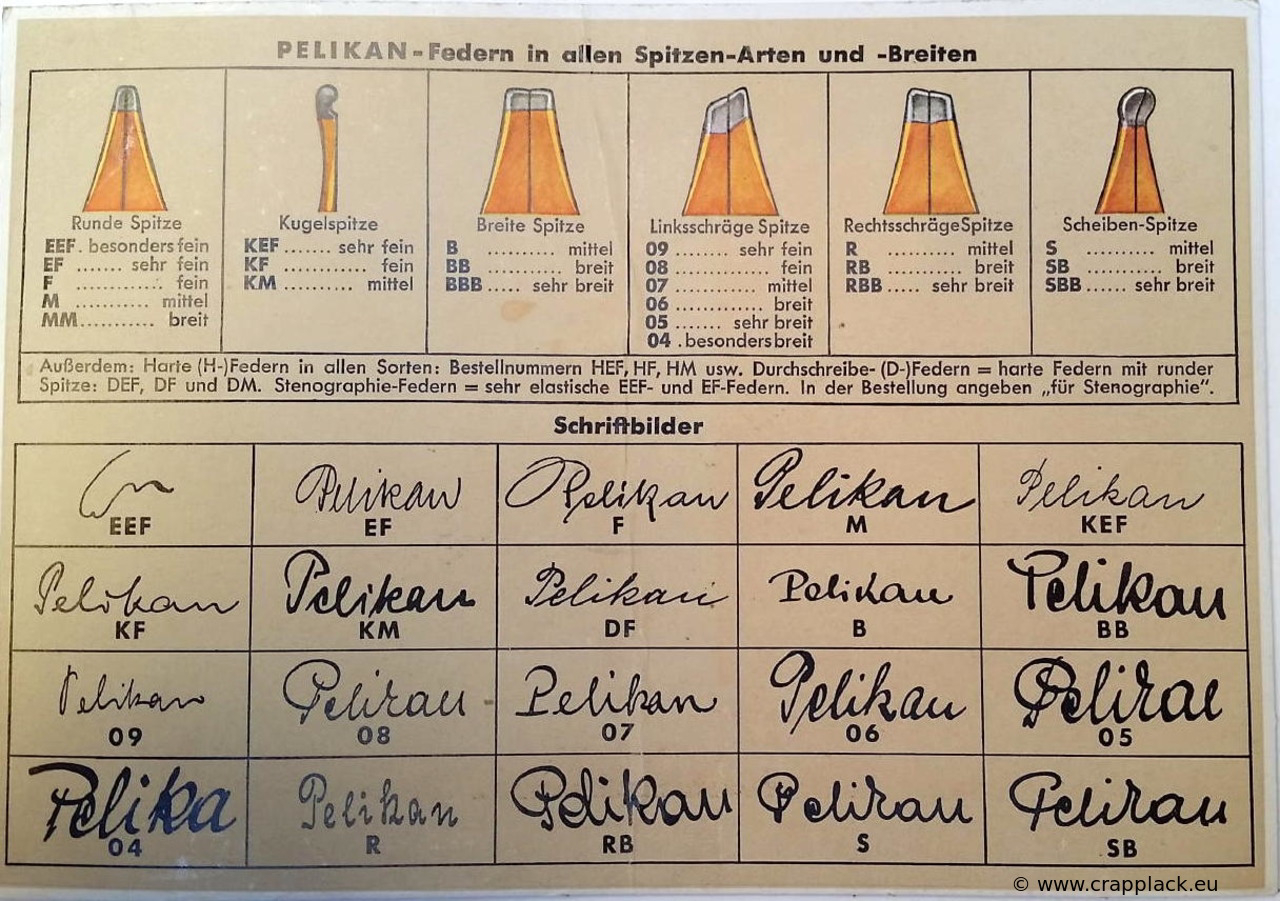 PELIKAN-Federn in allen Spitzen-Arten und -Breiten
Runde Spitze
EEF . besonders fein
EF ....... sehr fein
F ............. fein
M ........... mittel
MM ........... breit
Kugelspitze
KEF ....... sehr fein
KF ............ fein
KM .......... mittel
Breite Spitze
B .......... mittel
BB ........... breit
BBB ..... sehr breit
Linksschräge Spitze
09 ....... sehr fein
08 ............ fein
07 .......... mittel
06 ........... breit
05 ....... sehr breit
04 . besonders breit
Rechtsschräge Spitze
R .......... mittel
RB .......... breit
RBB ..... sehr breit
Scheiben-Spitze
S .......... mittel
SB ........... breit
SBB ...... sehr breit
Außerdem: Harte (H-)Federn in allen Sorten: Bestellnummern HEF, HF, HM usw. Durchschreibe- (D-)Federn = harte Federn mit runder
Spitze: DEF, DF und DM. Stenographie-Federn = sehr elastische EEF- und EF-Federn. In der Bestellung angeben „für Stenographie“.
Schriftbilder
EEF
Pelikan
EF
Pelikan
F
Pelikan
M
Pelikan
KEF
Pelikan
KF
Pelikan
KM
Pelikan
DF
Pelikan
B
Pelikan
BB
Pelikan
09
Pelikan
08
Pelikan
07
Pelikan
06
Pelika
05
Pelika
04
Pelikan
R
Pelikan
RB
Pelikan
S
Pelikan
SB
© www.crapplack.eu